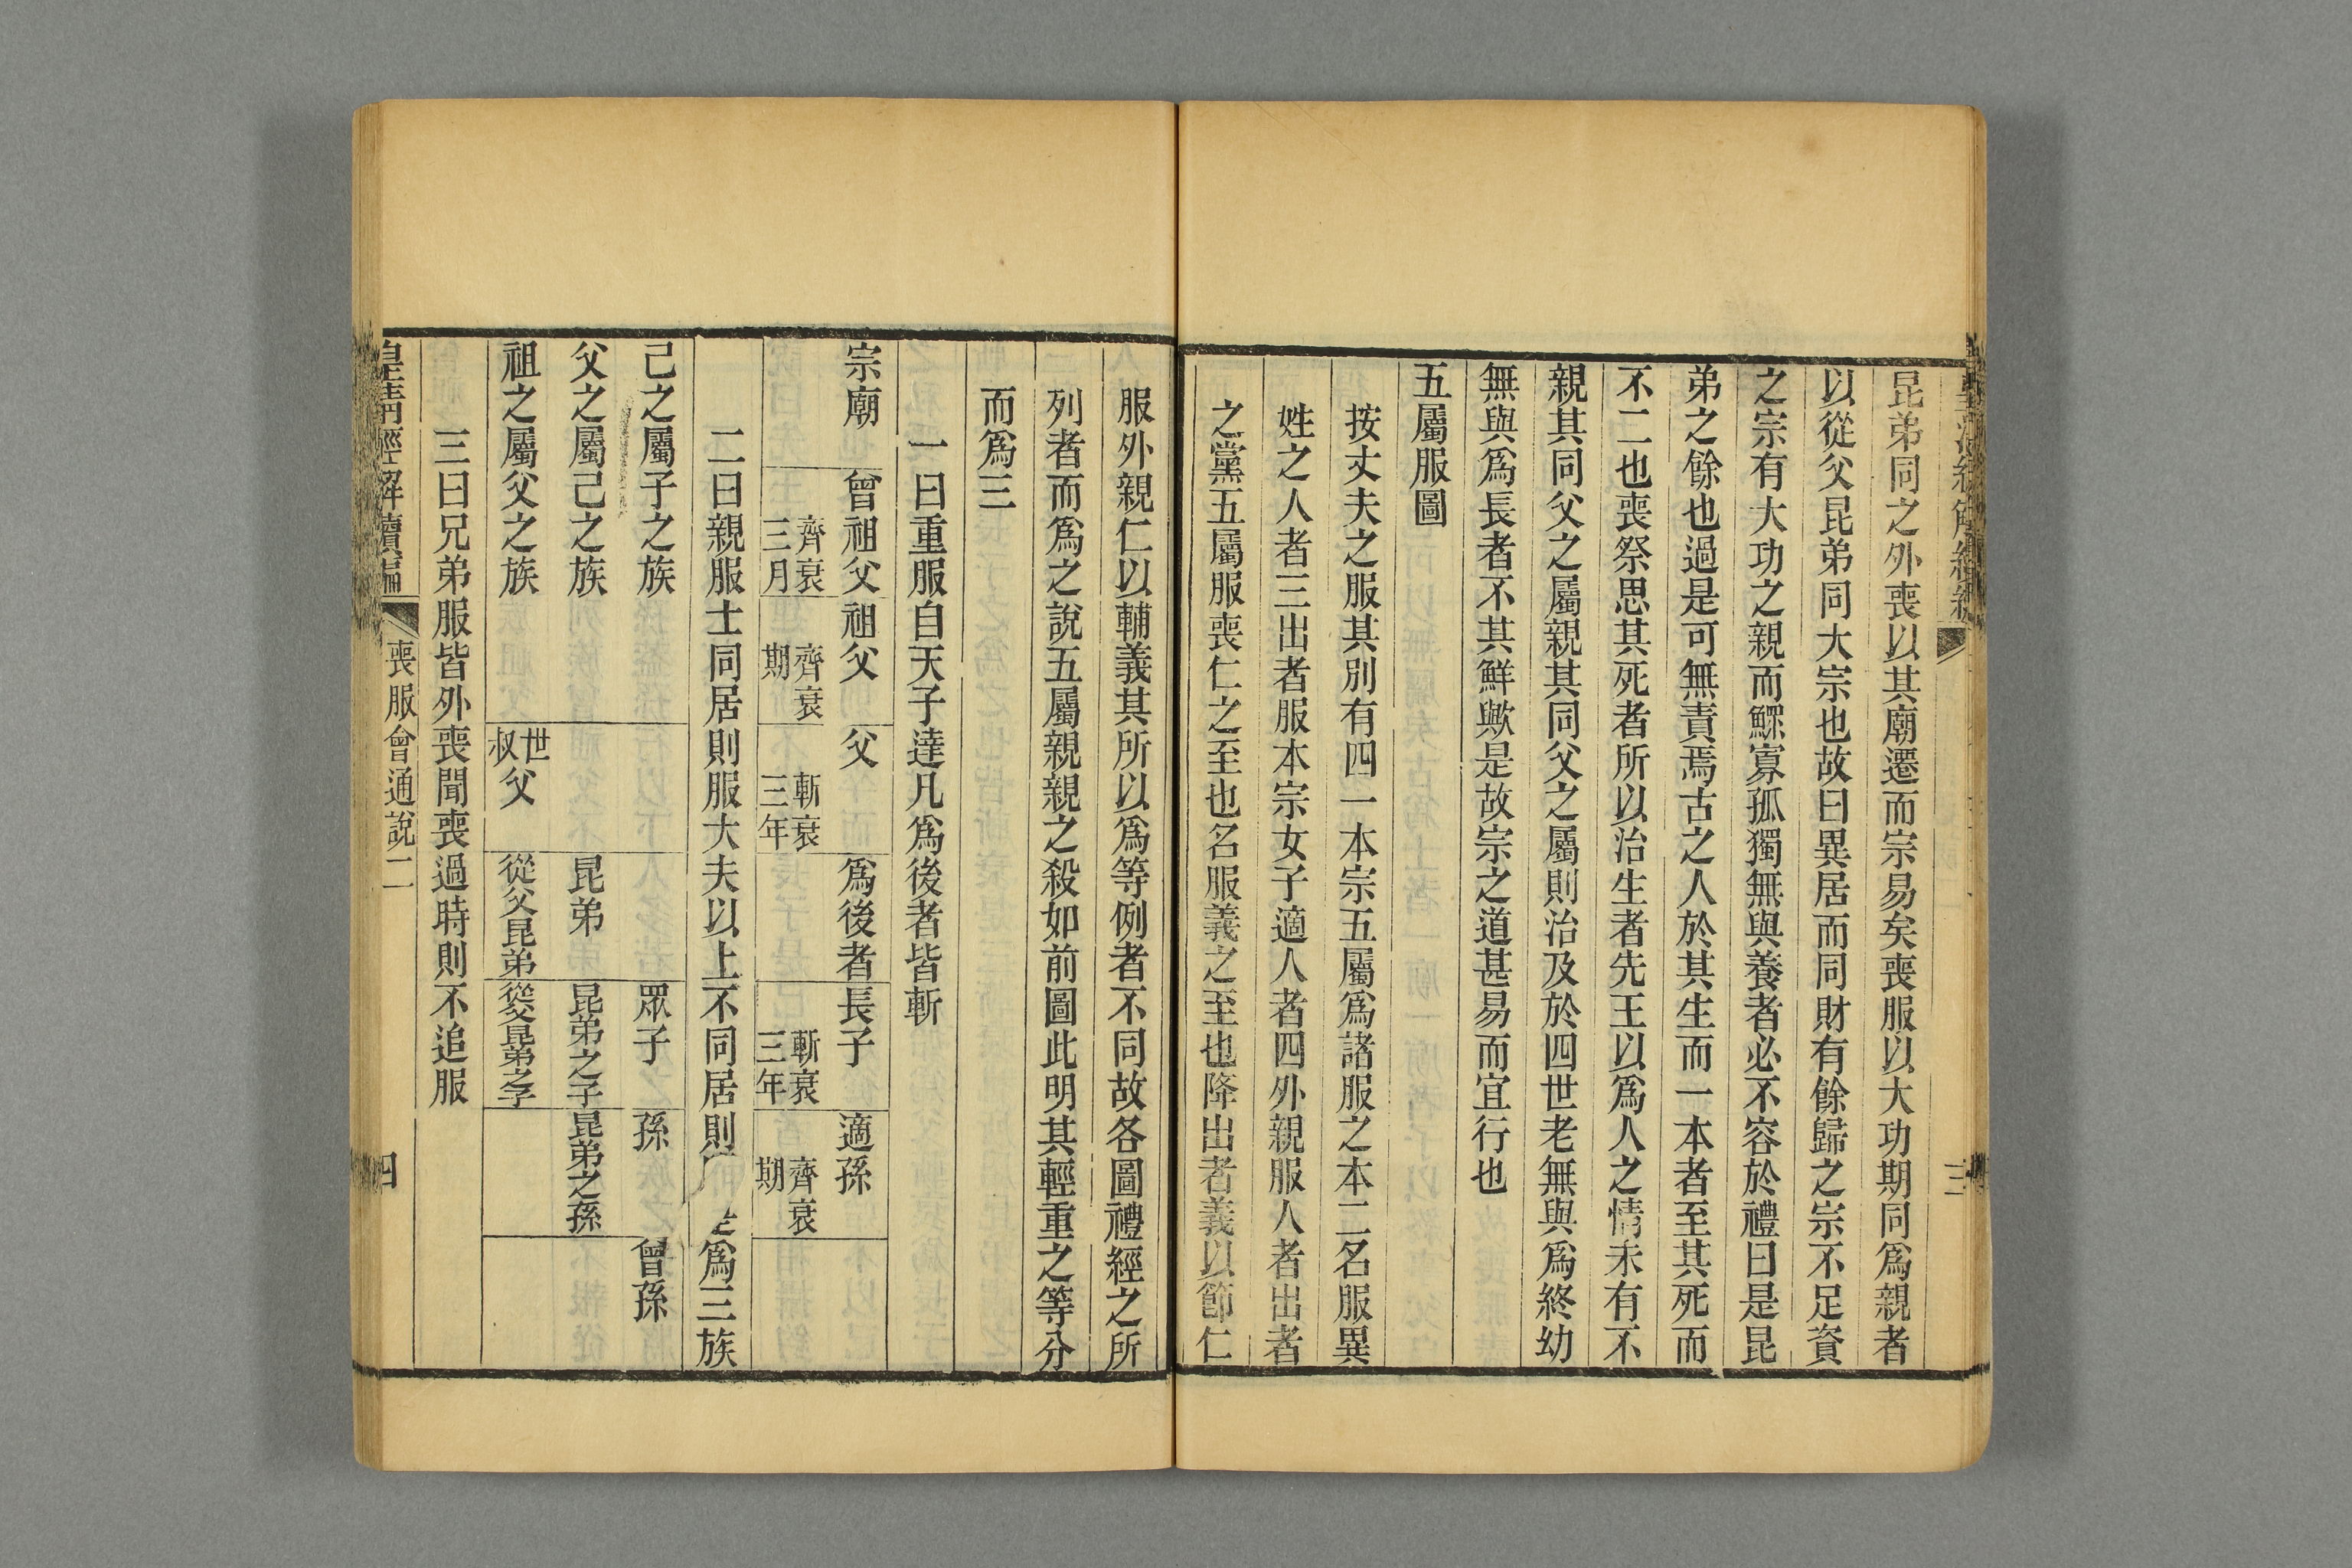 昆弟同之外喪以其廟遷而宗易矣喪服以大功期同爲親者
以從父昆弟同大宗也故曰異居而同財有餘歸之宗不足資
之宗有大功之親而鰥寡孤獨無與養者必不容於禮曰是昆
弟之餘也過是可無責焉古之人於其生而一本者至其死而
不二也喪祭思其死者所以治生者先王以爲人之情未有不
親其同父之屬親其同父之屬則治及於四世老無與爲終幼
無與爲長者不其鮮歟是故宗之道甚易而宜行也
五屬服圖
按丈夫之服其別有四一本宗五屬爲諸服之本二名服異
姓之人者三出者服本宗女子適人者四外親服人者出者
之黨五屬服喪仁之至也名服義之至也降出者義以節仁
三
服外親仁以輔義其所以爲等例者不同故各圖禮經之所
列者而爲之說五屬親親之殺如前圖此明其輕重之等分
而爲三
一曰重服自天子達凡爲後者皆斬
宗廟 曾祖父 祖父 父 爲後者 長子 適孫
齊衰三月 齊衰期 斬衰三年 斬衰三年 齊衰期
二曰親服士同居則服大夫以上不同居則 爲三族
己之屬子之族 眾子 孫 曾孫
父之屬己之族 昆弟 昆弟之子 昆弟之孫
祖之屬父之族 世叔父 從父昆弟 從父昆弟之子
三曰兄弟服皆外喪聞喪過時則不追服
皇清經解續編 喪服會通說二 四